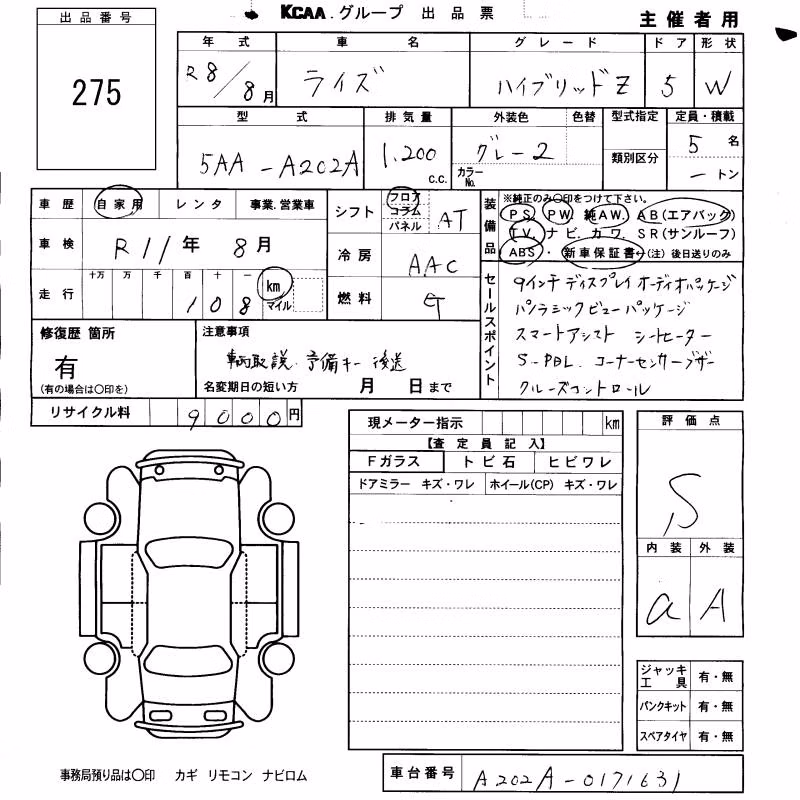 KCAA.グループ 出品票
主催者用
出品番号
275
年式 車名 グレード ドア 形状
R8/8月 ライズ ハイブリッドZ 5 W
型式 排気量 外装色 色替 型式指定 定員・積載
5AA-A202A 1,200 c.c. グレー2 カラーNo. 類別区分 5名
ートン
車歴 自家用 レンタ 事業.営業車
車検 R11年 8月
走行 十万 万 千 百 十 一
108 km マイル
シフト フロア コラム パネル AT
冷房 AAC
燃料 G
装備品 ※純正のみ〇印をつけて下さい。
PS PW 純AW. AB(エアバック)
TV. ナビ. カワ. SR(サンルーフ)
ABS・新車保証書←(注)後日送りのみ
セールスポイント
9インチディスプレイオーディオパッケージ
パノラミックビューパッケージ
スマートアシスト シートヒーター
S-PBL. コーナーセンサーブザー
クルーズコントロール
修復歴 箇所
有
(有の場合は〇印を)
注意事項
車両取説.予備キー後送
名変期日の短い方 月 日まで
リサイクル料 9000円
現メーター指示 km
【査定員記入】
Fガラス トビ石 ヒビワレ
ドアミラー キズ・ワレ ホイール(CP) キズ・ワレ
評価点
S
内装 外装
a A
ジャッキ工具 有・無
パンクキット 有・無
スペアタイヤ 有・無
事務局預り品は〇印 カギ リモコン ナビロム
車台番号 A202A-0171631